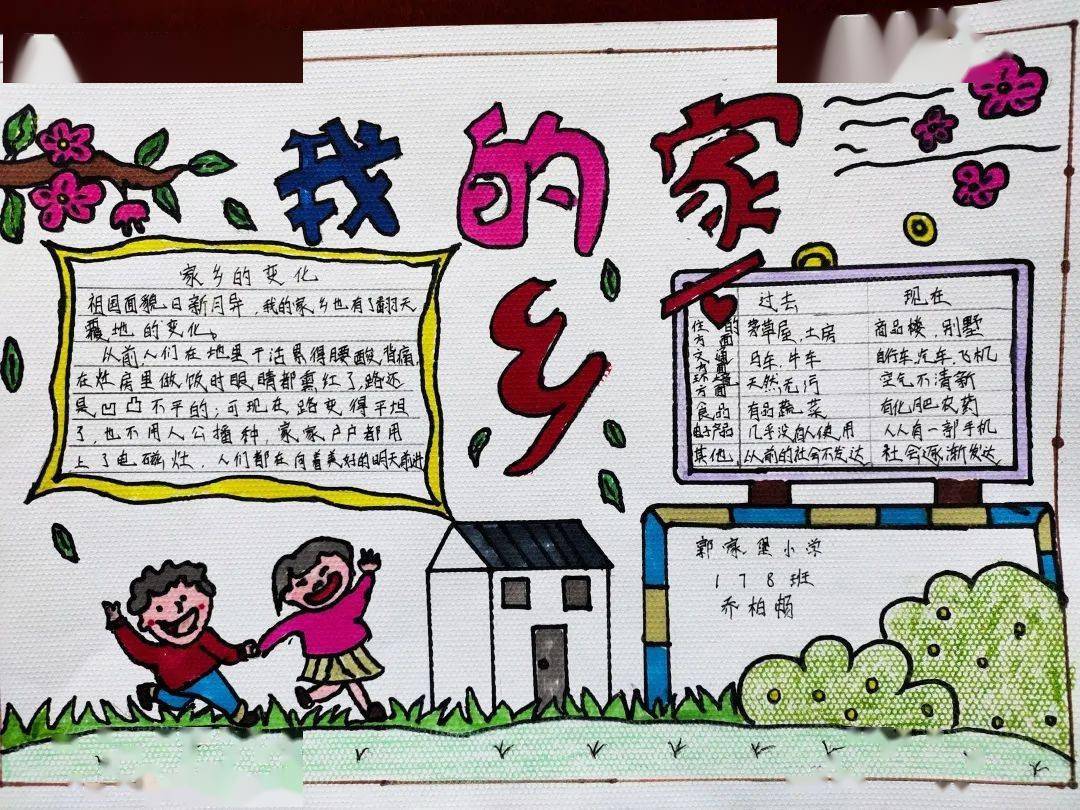 我的家乡
家乡的变化
祖国面貌日新月异，我的家乡也有了翻天
覆地的变化。
从前人们在地里干活累得腰酸背痛，
在灶房里做饭时眼睛都熏红了，路还
是凹凸不平的；可现在路变得平坦
了，也不用人公播种，家家户户都用
上了电磁灶，人们都在向着美好的明天前进
过去 现在
住的方面 茅草屋，土房 商品楼，别墅
交通方面 马车，牛车 自行车，汽车，飞机
环境方面 天然无污 空气不清新
食品 有品蔬菜 有化肥农药
电子产品 几乎没有人使用 人人有一部手机
其他 从前的社会不发达 社会逐渐发达
郭家堡小学
178班
乔柏畅